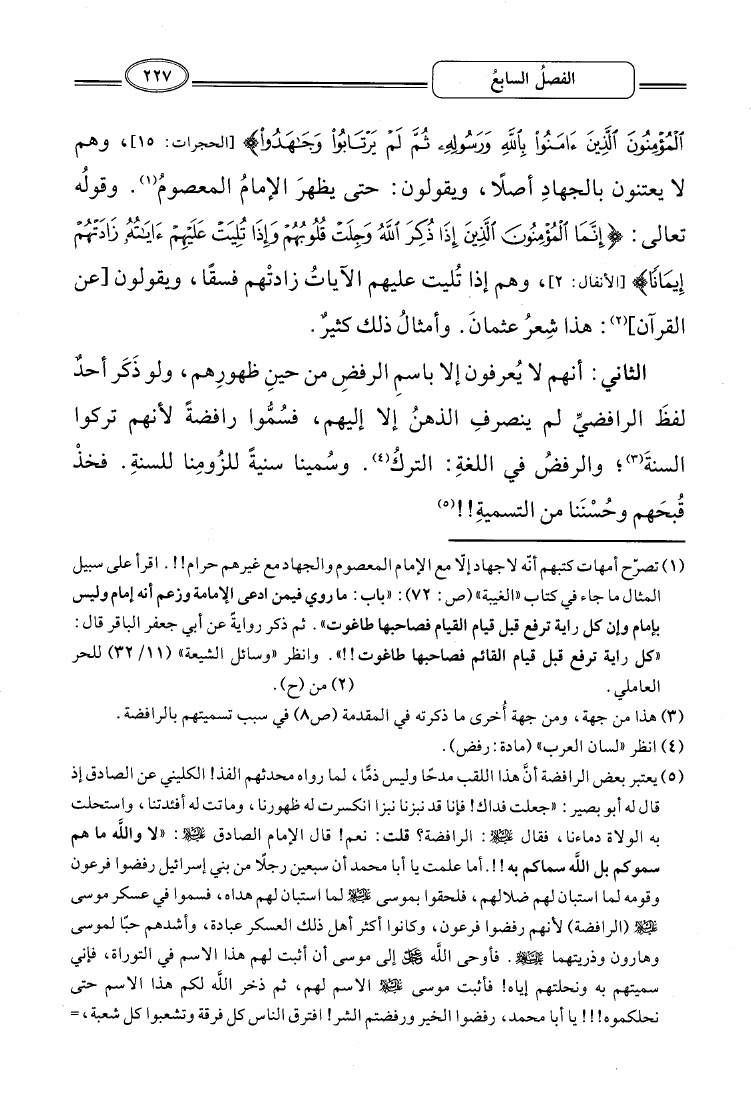 الفصلُ السابعُ
٢٢٧
ٱلْمُؤْمِنُونَ ٱلَّذِينَ ءَامَنُوا۟ بِٱللَّهِ وَرَسُولِهِۦ ثُمَّ لَمْ يَرْتَابُوا۟ وَجَـٰهَدُوا۟﴾ [الحجرات: ١٥]، وهم
لا يعتنون بالجهادِ أصلًا، ويقولون: حتى يظهرَ الإمامُ المعصومُ(١). وقولُه
تعالى: ﴿إِنَّمَا ٱلْمُؤْمِنُونَ ٱلَّذِينَ إِذَا ذُكِرَ ٱللَّهُ وَجِلَتْ قُلُوبُهُمْ وَإِذَا تُلِيَتْ عَلَيْهِمْ ءَايَـٰتُهُۥ زَادَتْهُمْ
إِيمَـٰنًا﴾ [الأنفال: ٢]، وهم إذا تُليت عليهم الآياتُ زادتْهم فسقًا، ويقولون [عن
القرآن](٢): هذا شِعرُ عثمانَ. وأمثالُ ذلك كثيرٌ.
الثاني: أنهم لا يُعرفون إلا باسمِ الرفضِ من حينِ ظهورِهم، ولو ذَكَر أحدٌ
لفظَ الرافضيِّ لم ينصرفِ الذهنُ إلا إليهم، فسُمُّوا رافضةً لأنهم تركوا
السنةَ(٣)؛ والرفضُ في اللغةِ: التركُ(٤). وسُمينا سنيةً للزُومِنا للسنةِ. فخذْ
قُبحَهم وحُسْنَنا من التسميةِ!!(٥)
(١) تصرّح أمهات كتبهم أنّه لا جهاد إلّا مع الإمام المعصوم والجهاد مع غيرهم حرام!!. اقرأ على سبيل
المثال ما جاء في كتاب «الغيبة» (ص: ٧٢): «باب: ما روي فيمن ادعى الإمامة وزعم أنه إمام وليس
بإمام وإن كل راية ترفع قبل قيام القيام فصاحبها طاغوت». ثم ذكر روايةً عن أبي جعفر الباقر قال:
«كل راية ترفع قبل قيام القائم فصاحبها طاغوت!!». وانظر «وسائل الشيعة» (١١/ ٣٢) للحر
العاملي. (٢) من (ح).
(٣) هذا من جهة، ومن جهة أُخرى ما ذكرته في المقدمة (ص٨) في سبب تسميتهم بالرافضة.
(٤) انظر «لسان العرب» (مادة: رفض).
(٥) يعتبر بعض الرافضة أنَّ هذا اللقب مدحًا وليس ذمًّا، لما رواه محدثهم الفذ! الكليني عن الصادق إذ
قال له أبو بصير: «جعلت فداك! فإنا قد نبزنا نبزا انكسرت له ظهورنا، وماتت له أفئدتنا، واستحلت
به الولاة دماءنا، فقال ﵇: الرافضة؟ قلت: نعم! قال الإمام الصادق ﵇: «لا والله ما هم
سموكم بل الله سماكم به!!. أما علمت يا أبا محمد أن سبعين رجلًا من بني إسرائيل رفضوا فرعون
وقومه لما استبان لهم ضلالهم، فلحقوا بموسى ﵇ لما استبان لهم هداه، فسموا في عسكر موسى
﵇ (الرافضة) لأنهم رفضوا فرعون، وكانوا أكثر أهل ذلك العسكر عبادة، وأشدهم حبًا لموسى
وهارون وذريتهما . فأوحى الله ﷿ إلى موسى أن أثبت لهم هذا الاسم في التوراة، فإني
سميتهم به ونحلتهم إياه! فأثبت موسى ﵇ الاسم لهم، ثم ذخر الله لكم هذا الاسم حتى
نحلكموه!!! يا أبا محمد، رفضوا الخير ورفضتم الشر! افترق الناس كل فرقة وتشعبوا كل شعبة، =